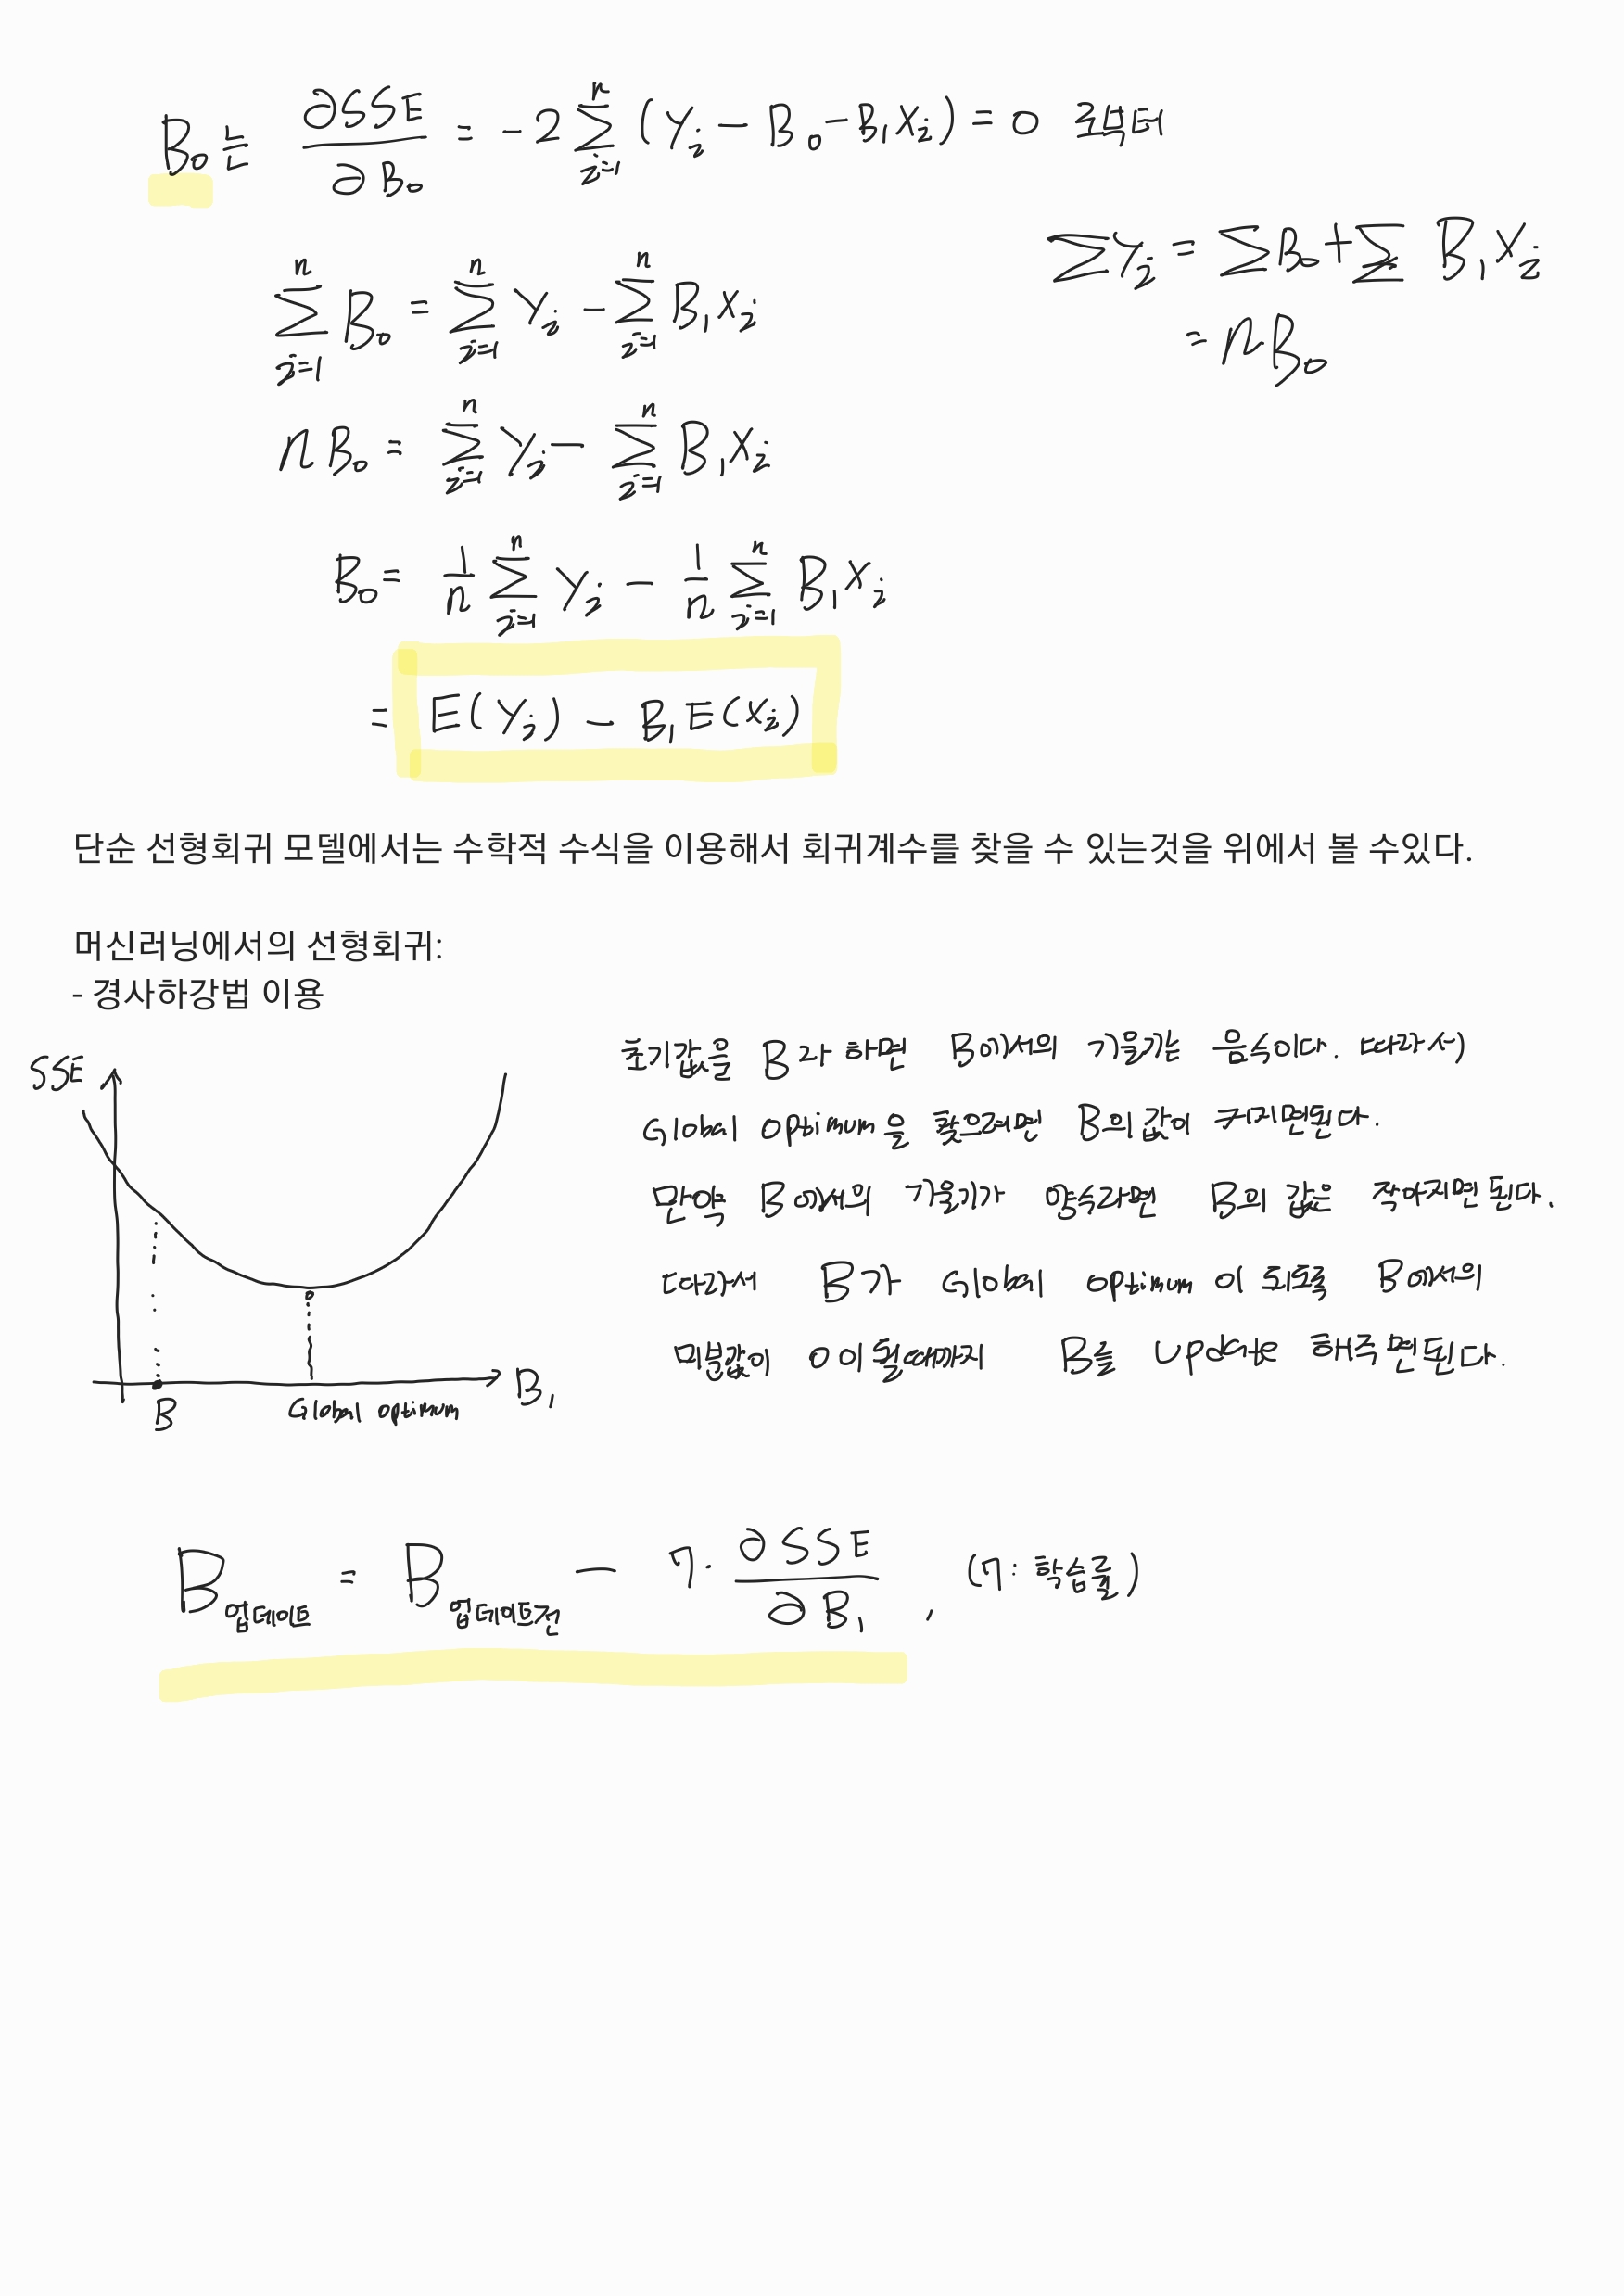 B₀는 ∂SSE/∂B₀ = -2 Σ_{i=1}^{n} (Y_i - B₀ - B₁X_i) = 0 로부터
ΣY_i = ΣB₀ + Σ B₁X_i
= nB₀
Σ_{i=1}^{n} B₀ = Σ_{i=1}^{n} Y_i - Σ_{i=1}^{n} B₁X_i
nB₀ = Σ_{i=1}^{n} Y_i - Σ_{i=1}^{n} B₁X_i
B₀ = 1/n Σ_{i=1}^{n} Y_i - 1/n Σ_{i=1}^{n} B₁X_i
= E(Y_i) - B₁E(X_i)
단순 선형회귀 모델에서는 수학적 수식을 이용해서 회귀계수를 찾을 수 있는것을 위에서 볼 수있다.
머신러닝에서의 선형회귀:
- 경사하강법 이용
SSE
B
Global optimum
B₁
초기값을 B라 하면 B에서의 기울기는 음수이다. 따라서)
Global optimum을 찾으려면 B의 값이 커지면된다.
만약 B에서의 기울기가 양수라면 B의 값은 작아지면 된다.
따라서 B가 Global optimum이 되도록 B에서의
미분값이 0이 될때까지 B를 update 해주면 된다.
B업데이트 = B업데이트전 - η · ∂SSE/∂B₁ , (η: 학습률)